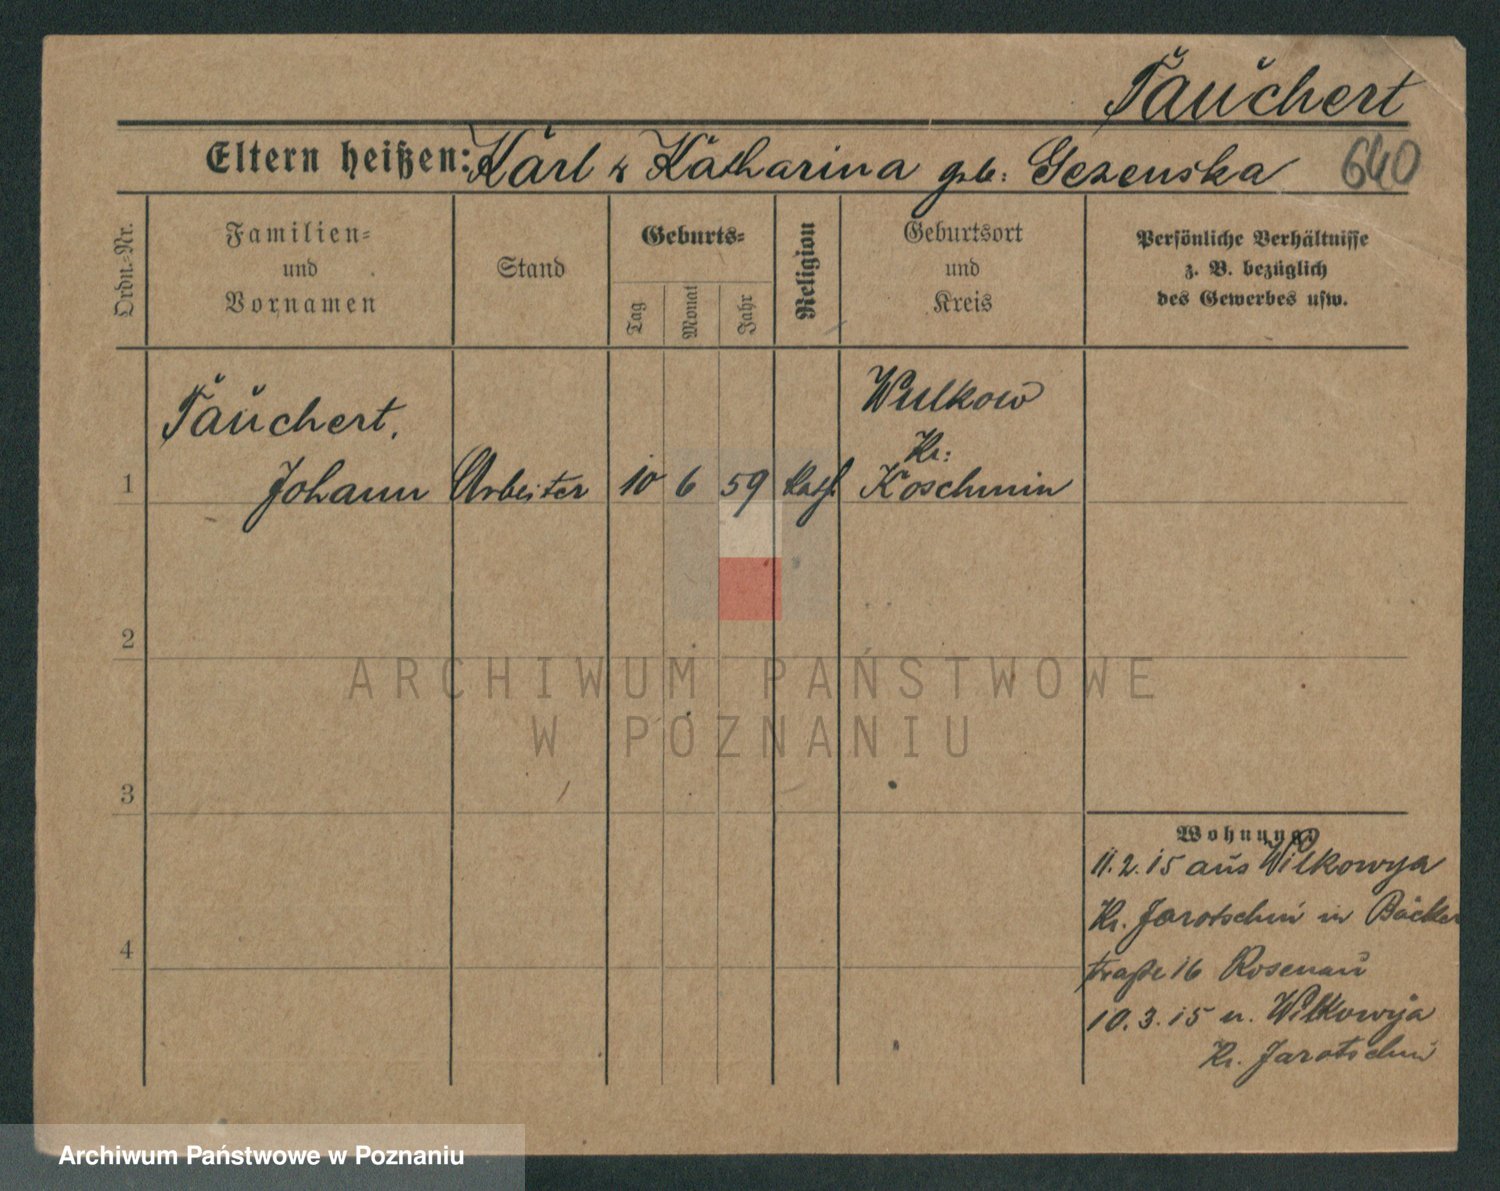 Tauchert
Eltern heißen: Karl u Katharina geb: Gezenska 640
Ordn.-Nr.
Familien-
und
Vornamen
Stand
Geburts-
Tag
Monat
Jahr
Religion
Geburtsort
und
Kreis
Persönliche Verhältnisse
z. B. bezüglich
des Gewerbes usw.
Tauchert,
Wulkow
Kr:
1 Johann Arbeiter 10 6 59 kath. Koschmin
2
ARCHIWUM PAŃSTWOWE
W POZNANIU
3
Wohnung
11.2.15 aus Wilkowya
Kr. Jarotschin in Bäcker
4
straße 16 Rosenau
10.3.15 n. Wilkowyja
Kr. Jarotschin
Archiwum Państwowe w Poznaniu